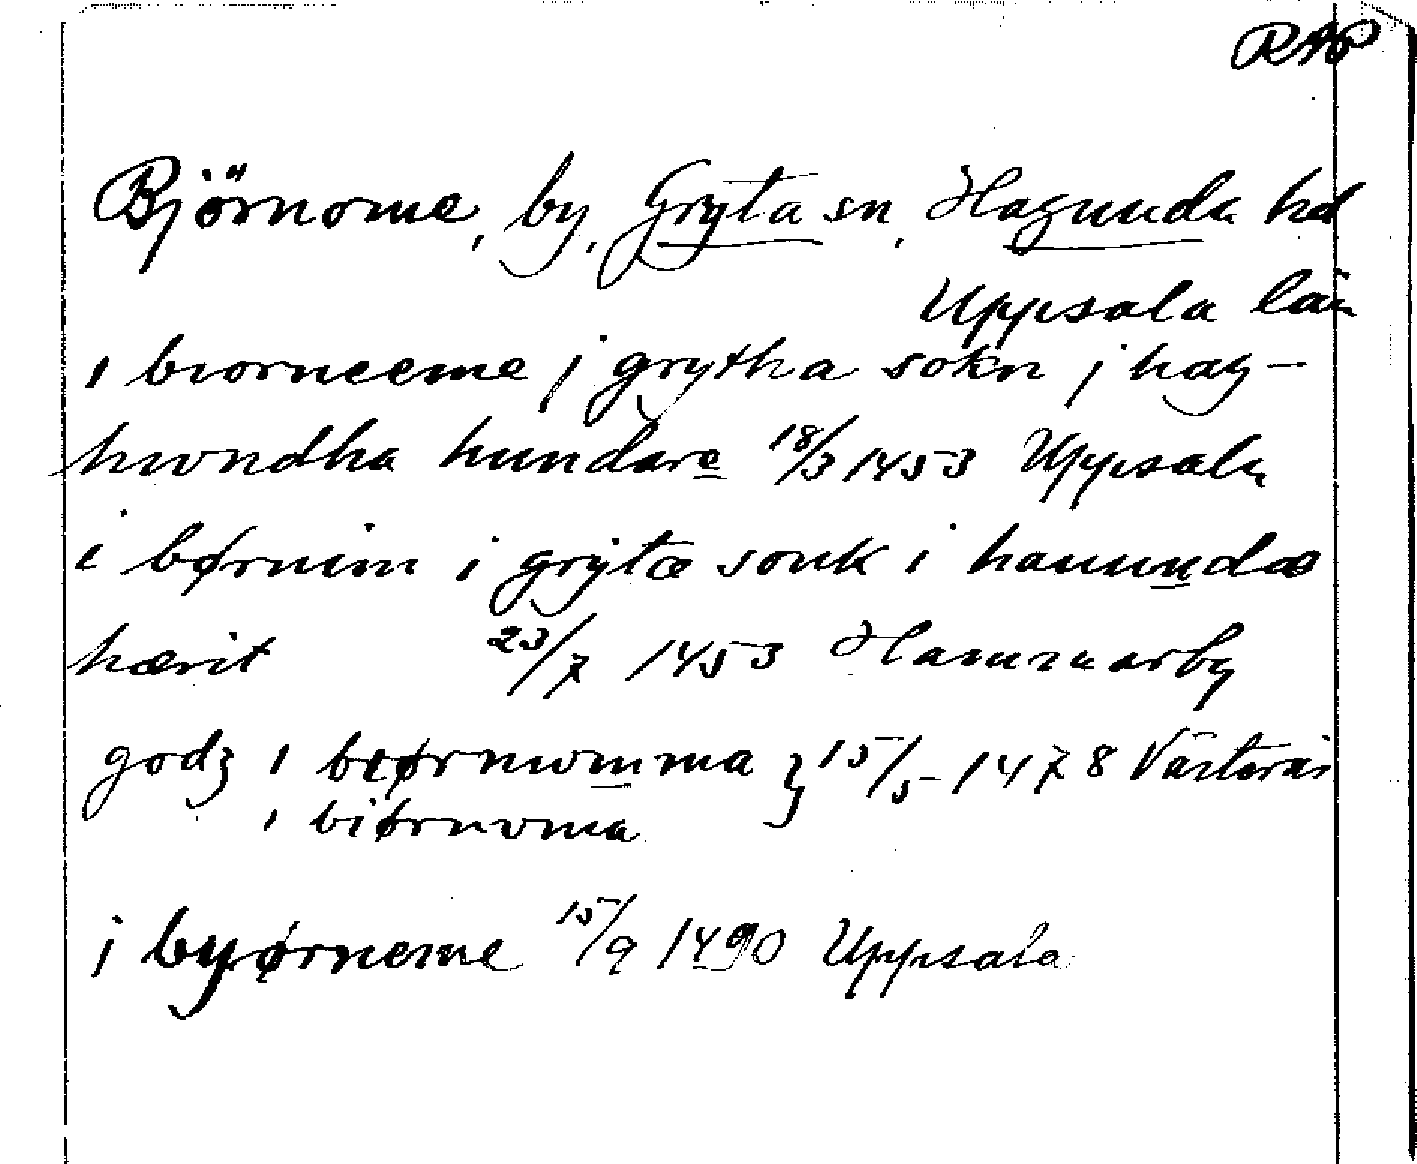 RAP
Björnome, by, Gryta sn, Hagunda hd
Uppsala län
ı bıorneeme j grytha sokn j hag-
hwndha hundare 18/3 1453 Uppsala
i børnim i grÿtæ sonk i hanundæ
hærit 23/7 1453 Hammarby
godz ı bıørnwmma } 15/5 1478 Västerås
ı biørnvma
j byørneme 15/9 1490 Uppsala